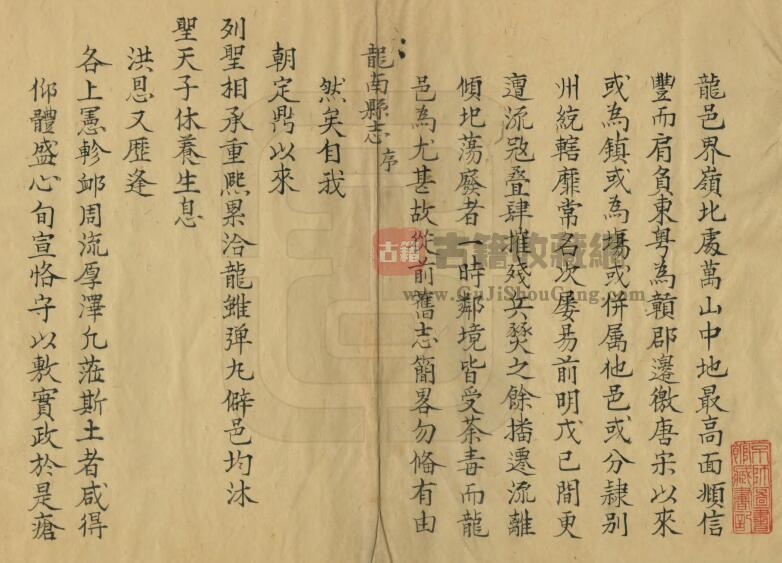 龍邑界嶺北處萬山中地最高面頫信
豐而肩負東粵為贛郡邊徼唐宋以來
或為鎮或為塲或併属他邑或分隸别
州統轄靡常名次屢易前明戊己間更
遭流宼疊肆摧殘兵燹之餘播遷流離
傾圮蕩廢者一時鄰境皆受荼毒而龍
邑為尤甚故從前舊志簡畧勿脩有由
龍南縣志 序
然矣自我
朝定鼎以來
列聖相承重熙累洽龍雖彈丸僻邑均沐
聖天子休養生息
洪恩又歷逢
各上憲軫卹周流厚澤允蒞斯土者咸得
仰體盛心旬宣恪守以敷實政於是瘡
京師圖書
館藏書記
古籍
古籍收藏網
www.GuJiShouCang.com